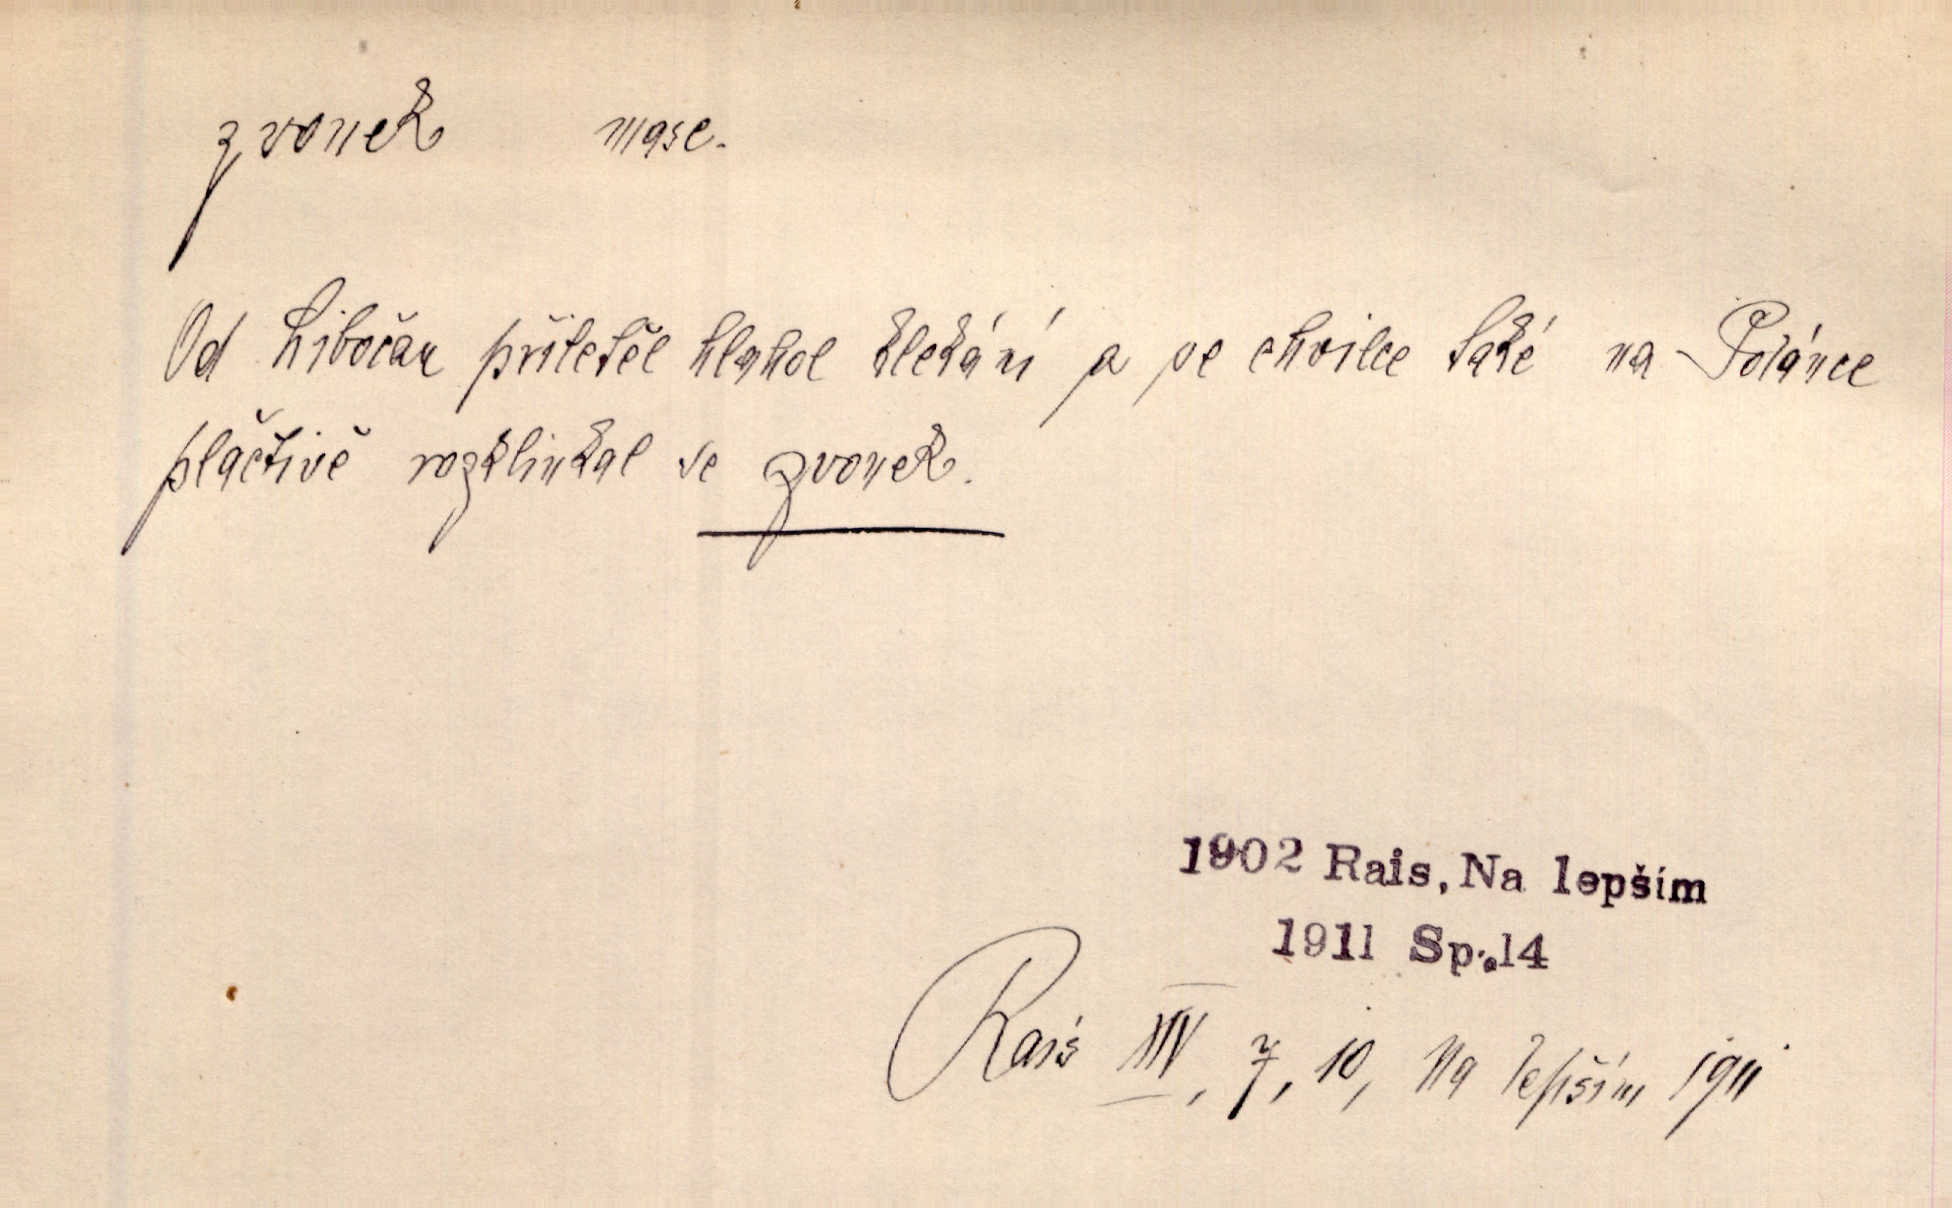 zvonek masc.
Od Libočan přiletěl hlahol klekání a ve chvilce také na Polánce
plačtivě rozklinkal se zvonek.
1902 Rais, Na lepším
1911 Sp. 14
Rais XIV, 7, 10, Na lepším 1911